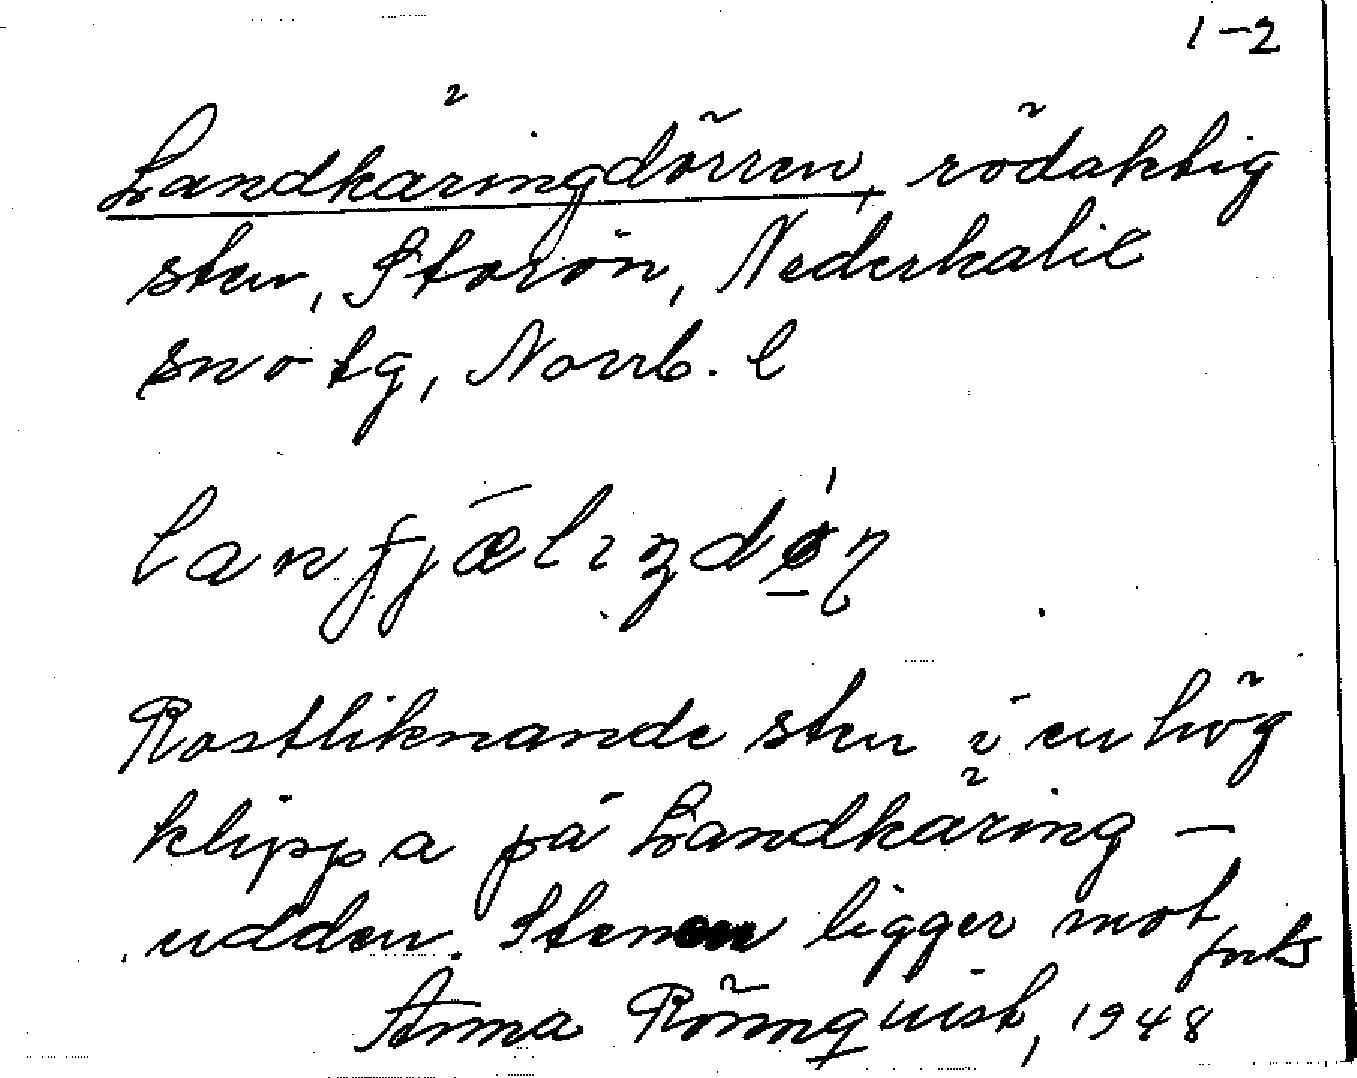 1-2
Landkäringdörren, rödaktig
sten, Storön, Nederkalix
sn o tg, Norrb. l
Rostliknande sten i en hög
klippa på Landkäring-
udden. Stenen ligger mot
forts
Anna Rönnquist, 1948